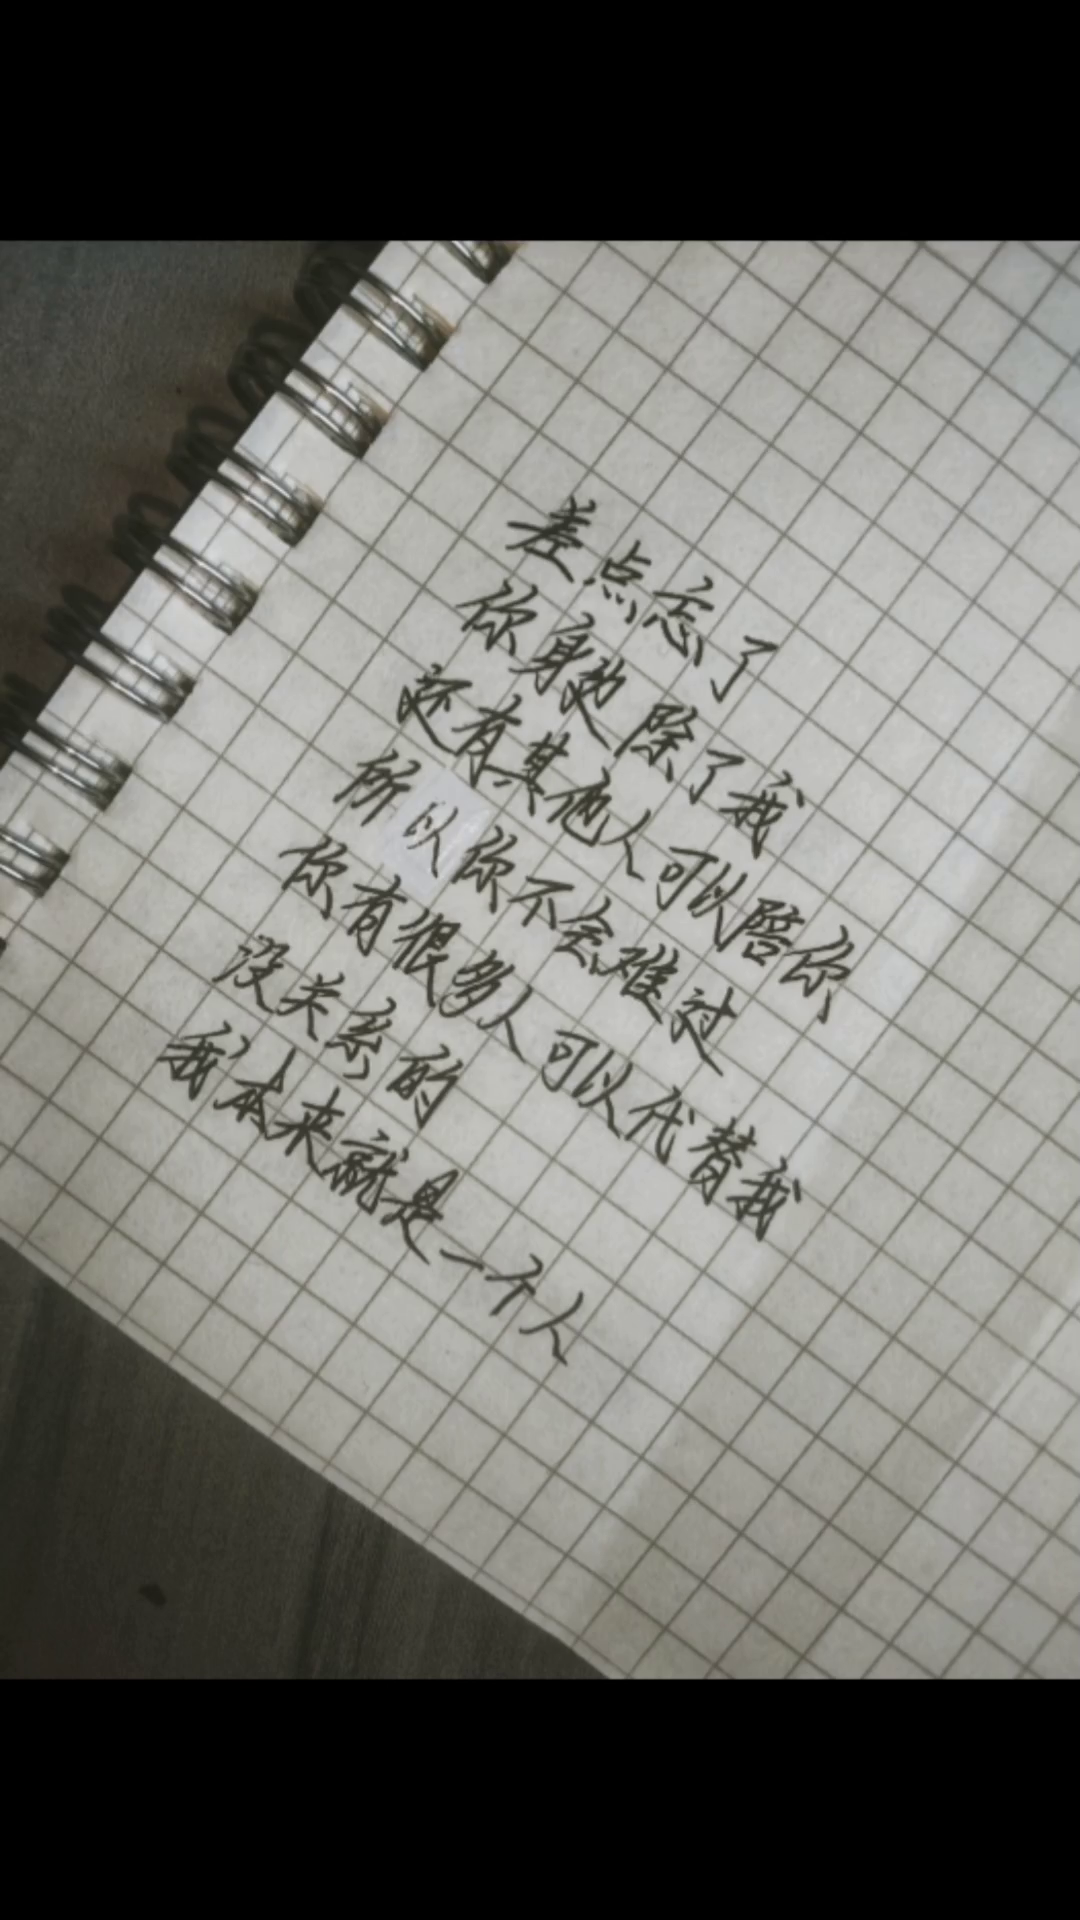 差点忘了
你身边除了我
还有其他人可以陪你
所以你不会难过
你有很多人可以代替我
没关系的
我本来就是一个人